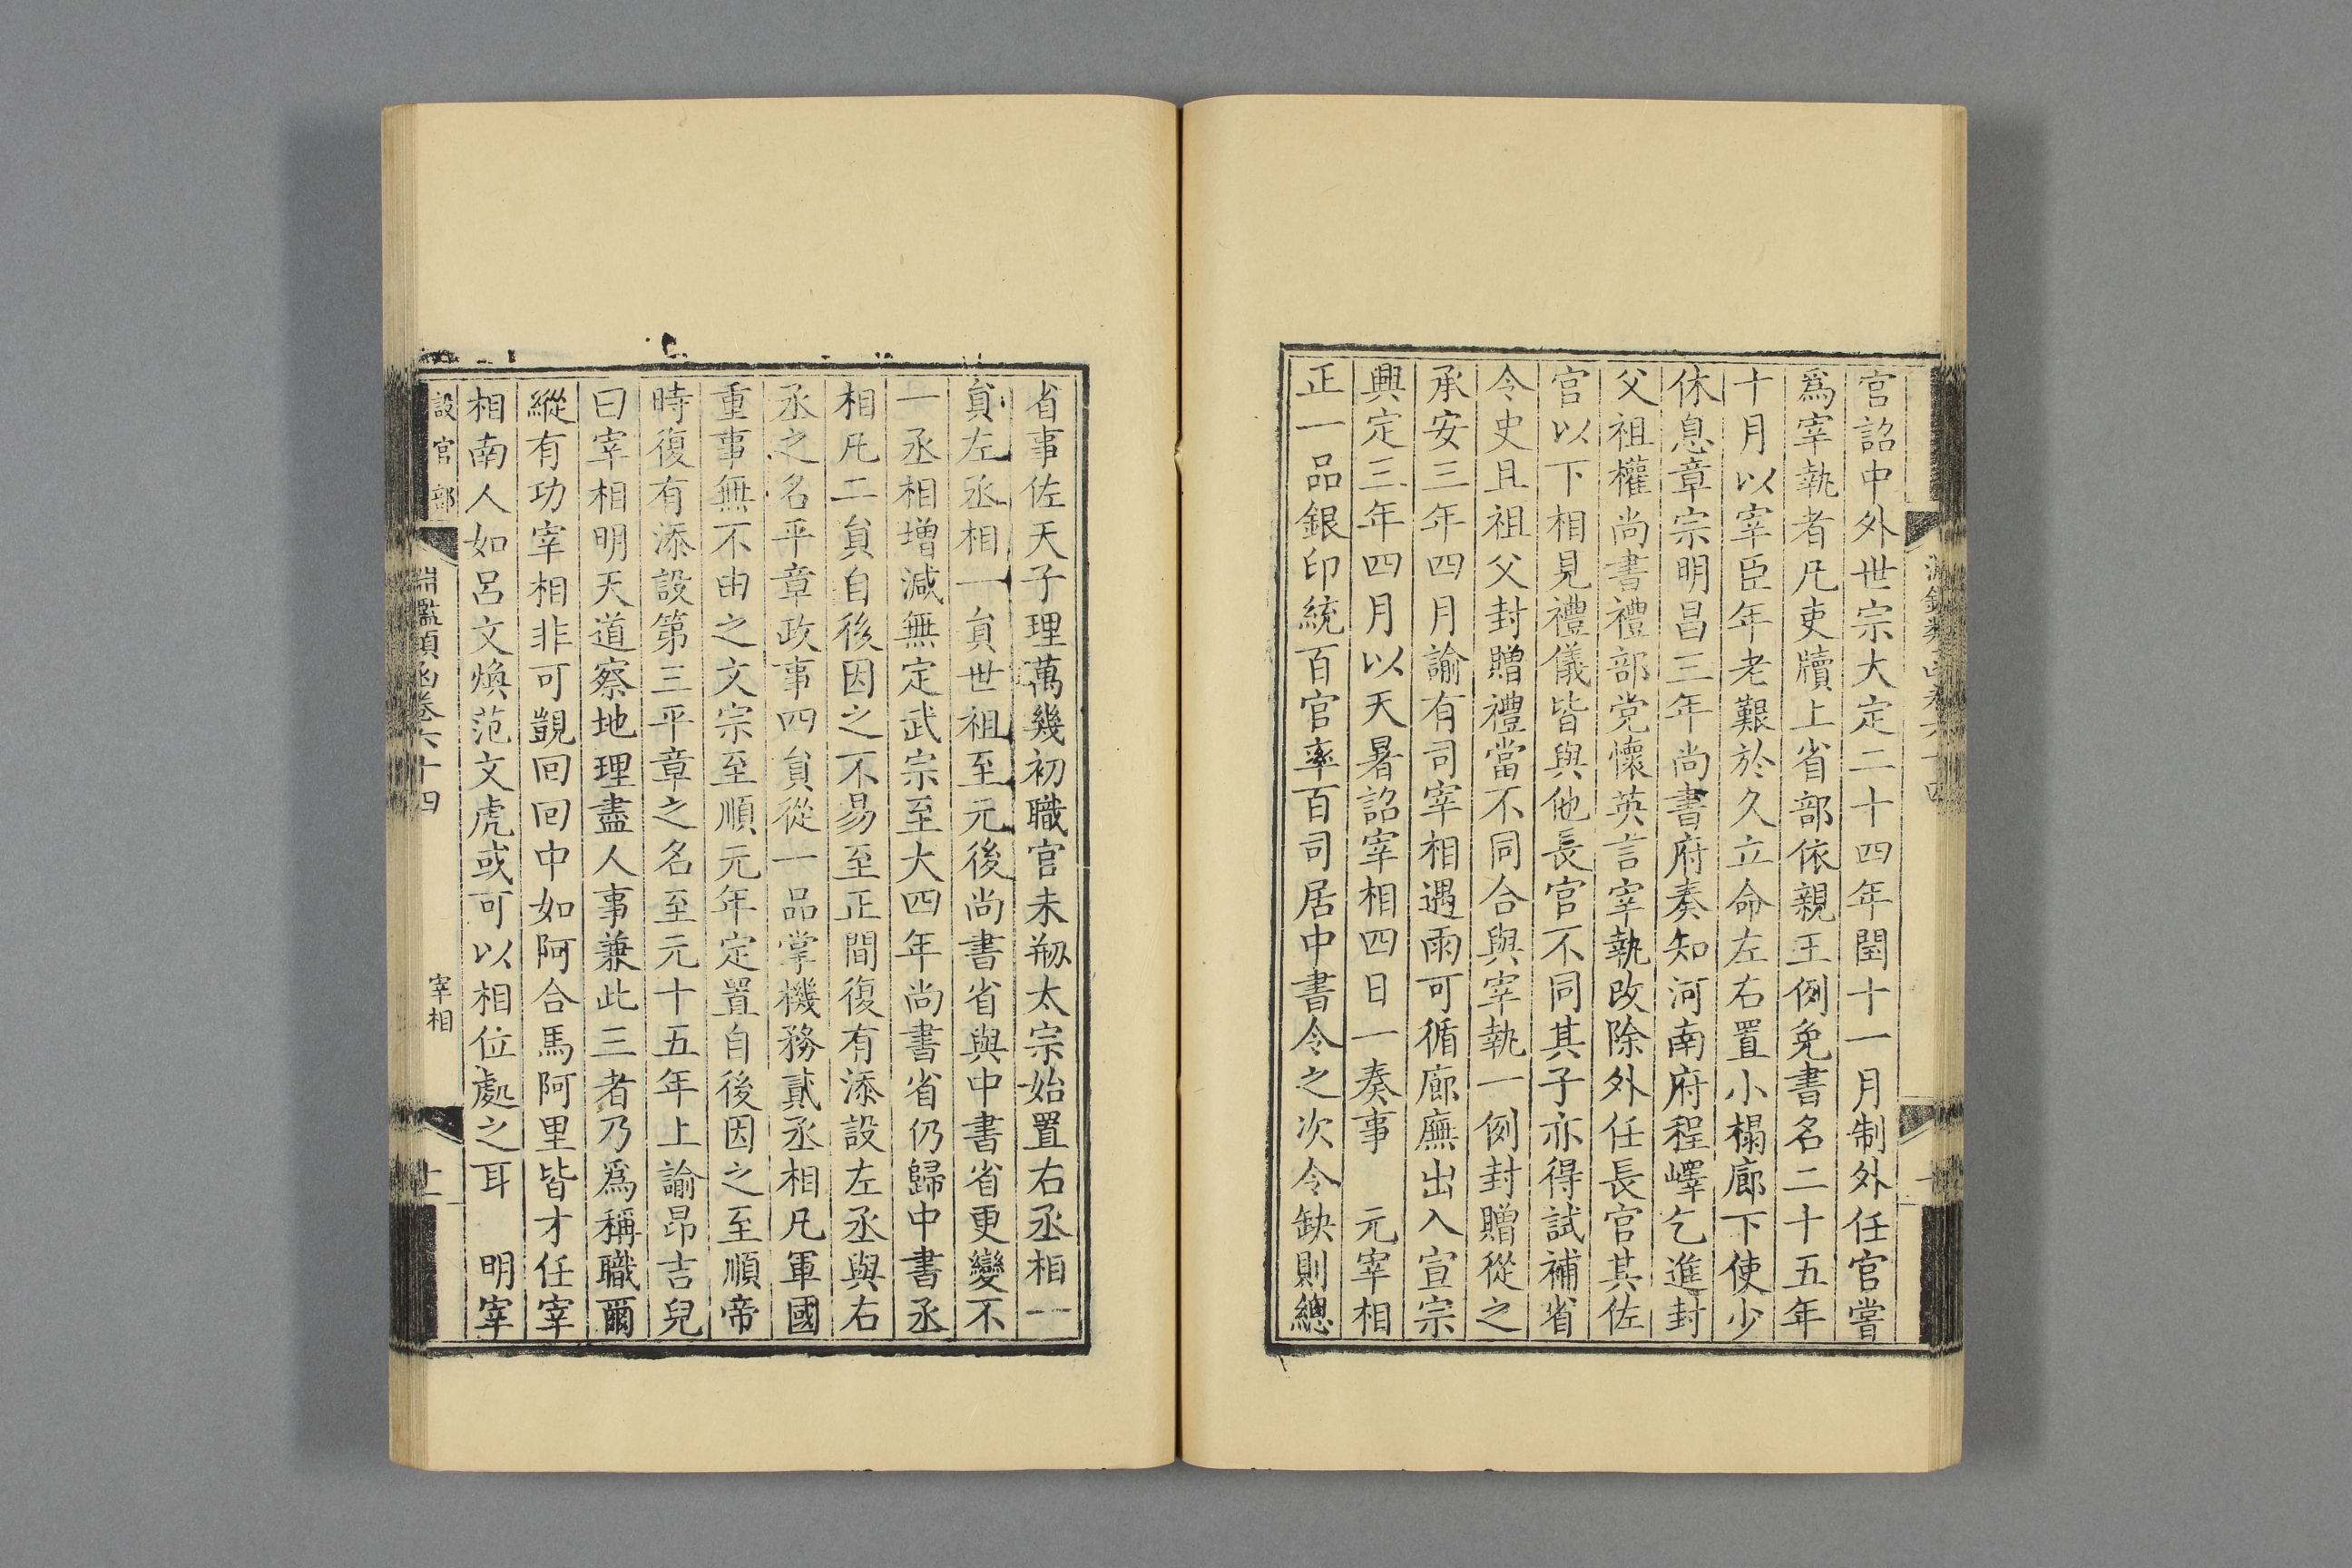 官詔中外世宗大定二十四年閏十一月制外任官嘗
爲宰執者凡吏牘上省部依親王例免書名二十五年
十月以宰臣年老艱於久立命左右置小榻廊下使少
休息章宗明昌三年尚書府奏知河南府程嶧乞進封
父祖權尚書禮部党懷英言宰執改除外任長官其佐
官以下相見禮儀皆與他長官不同其子亦得試補省
令史且祖父封贈禮當不同合與宰執一例封贈從之
承安三年四月諭有司宰相遇雨可循廊廡出入宣宗
興定三年四月以天暑詔宰相四日一奏事　元宰相
正一品銀印統百官率百司居中書令之次令缺則總
省事佐天子理萬幾初職官未刱太宗始置右丞相一
貟左丞相一貟世祖至元後尚書省與中書省更變不
一丞相増減無定武宗至大四年尚書省仍歸中書丞
相凡二貟自後因之不易至正間復有添設左丞與右
丞之名平章政事四貟從一品掌機務貳丞相凡軍國
重事無不由之文宗至順元年定置自後因之至順帝
時復有添設第三平章之名至元十五年上諭昂吉兒
曰宰相明天道察地理盡人事兼此三者乃爲稱職爾
縱有功宰相非可覬回回中如阿合馬阿里皆才任宰
相南人如呂文煥范文虎或可以相位處之耳　明宰
設官部
淵鑑類函卷六十四
宰相